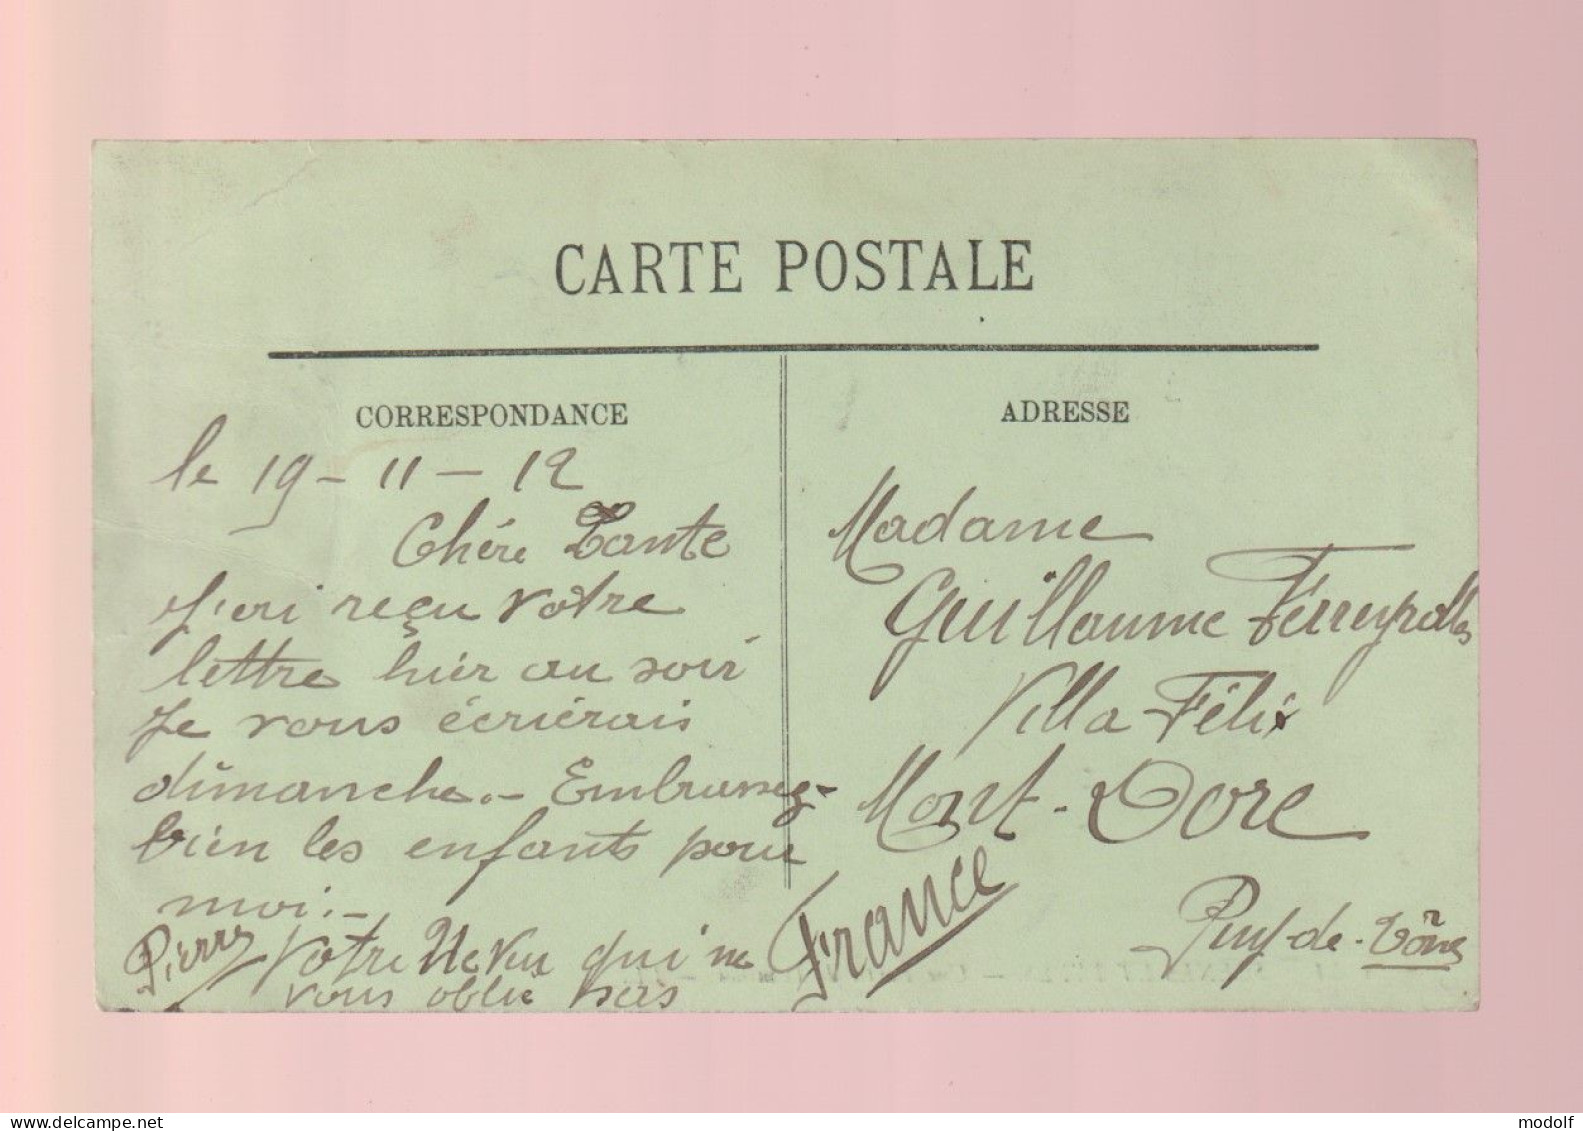 CARTE POSTALE
CORRESPONDANCE
le 19 - 11 - 12
Chére Tante
J'ai reçu votre
lettre hier au soir
Je vous écrierais
dimanche. - Embrassez-
bien les enfants pour
moi. -
Votre Neveu qui ne
vous oblie pas
Pierre
ADRESSE
Madame
Guillaume Ferreyrolles
Villa Félix
Mont-Dore
Puy-de-Dôme
France
www.delcampe.net
modolf